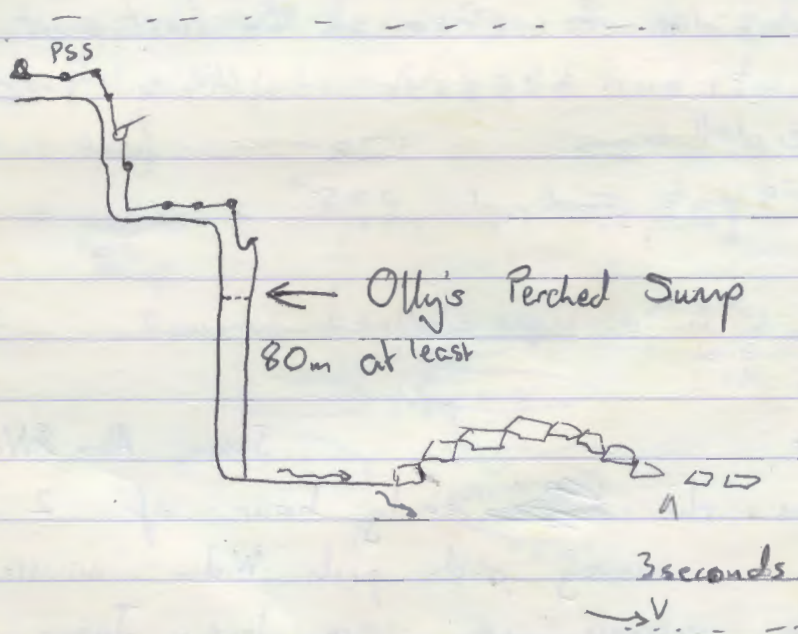 PSS
Olly's Perched Sump
80m at least
3 seconds